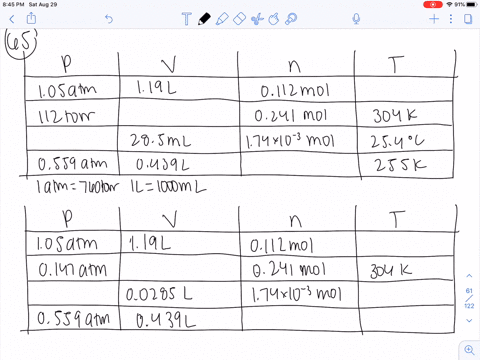 8:45 PM Sat Aug 29
91%
65
P V n T
1.05 atm 1.19 L 0.112 mol
112 torr 0.241 mol 304 K
28.5 mL 1.74×10⁻³ mol 25.4°C
0.559 atm 0.439 L 255 K
1 atm = 760 torr 1L = 1000mL
P V n T
1.05 atm 1.19 L 0.112 mol
0.147 atm 0.241 mol 304 K
0.0285 L 1.74×10⁻³ mol
0.559 atm 0.439 L
61
/
122